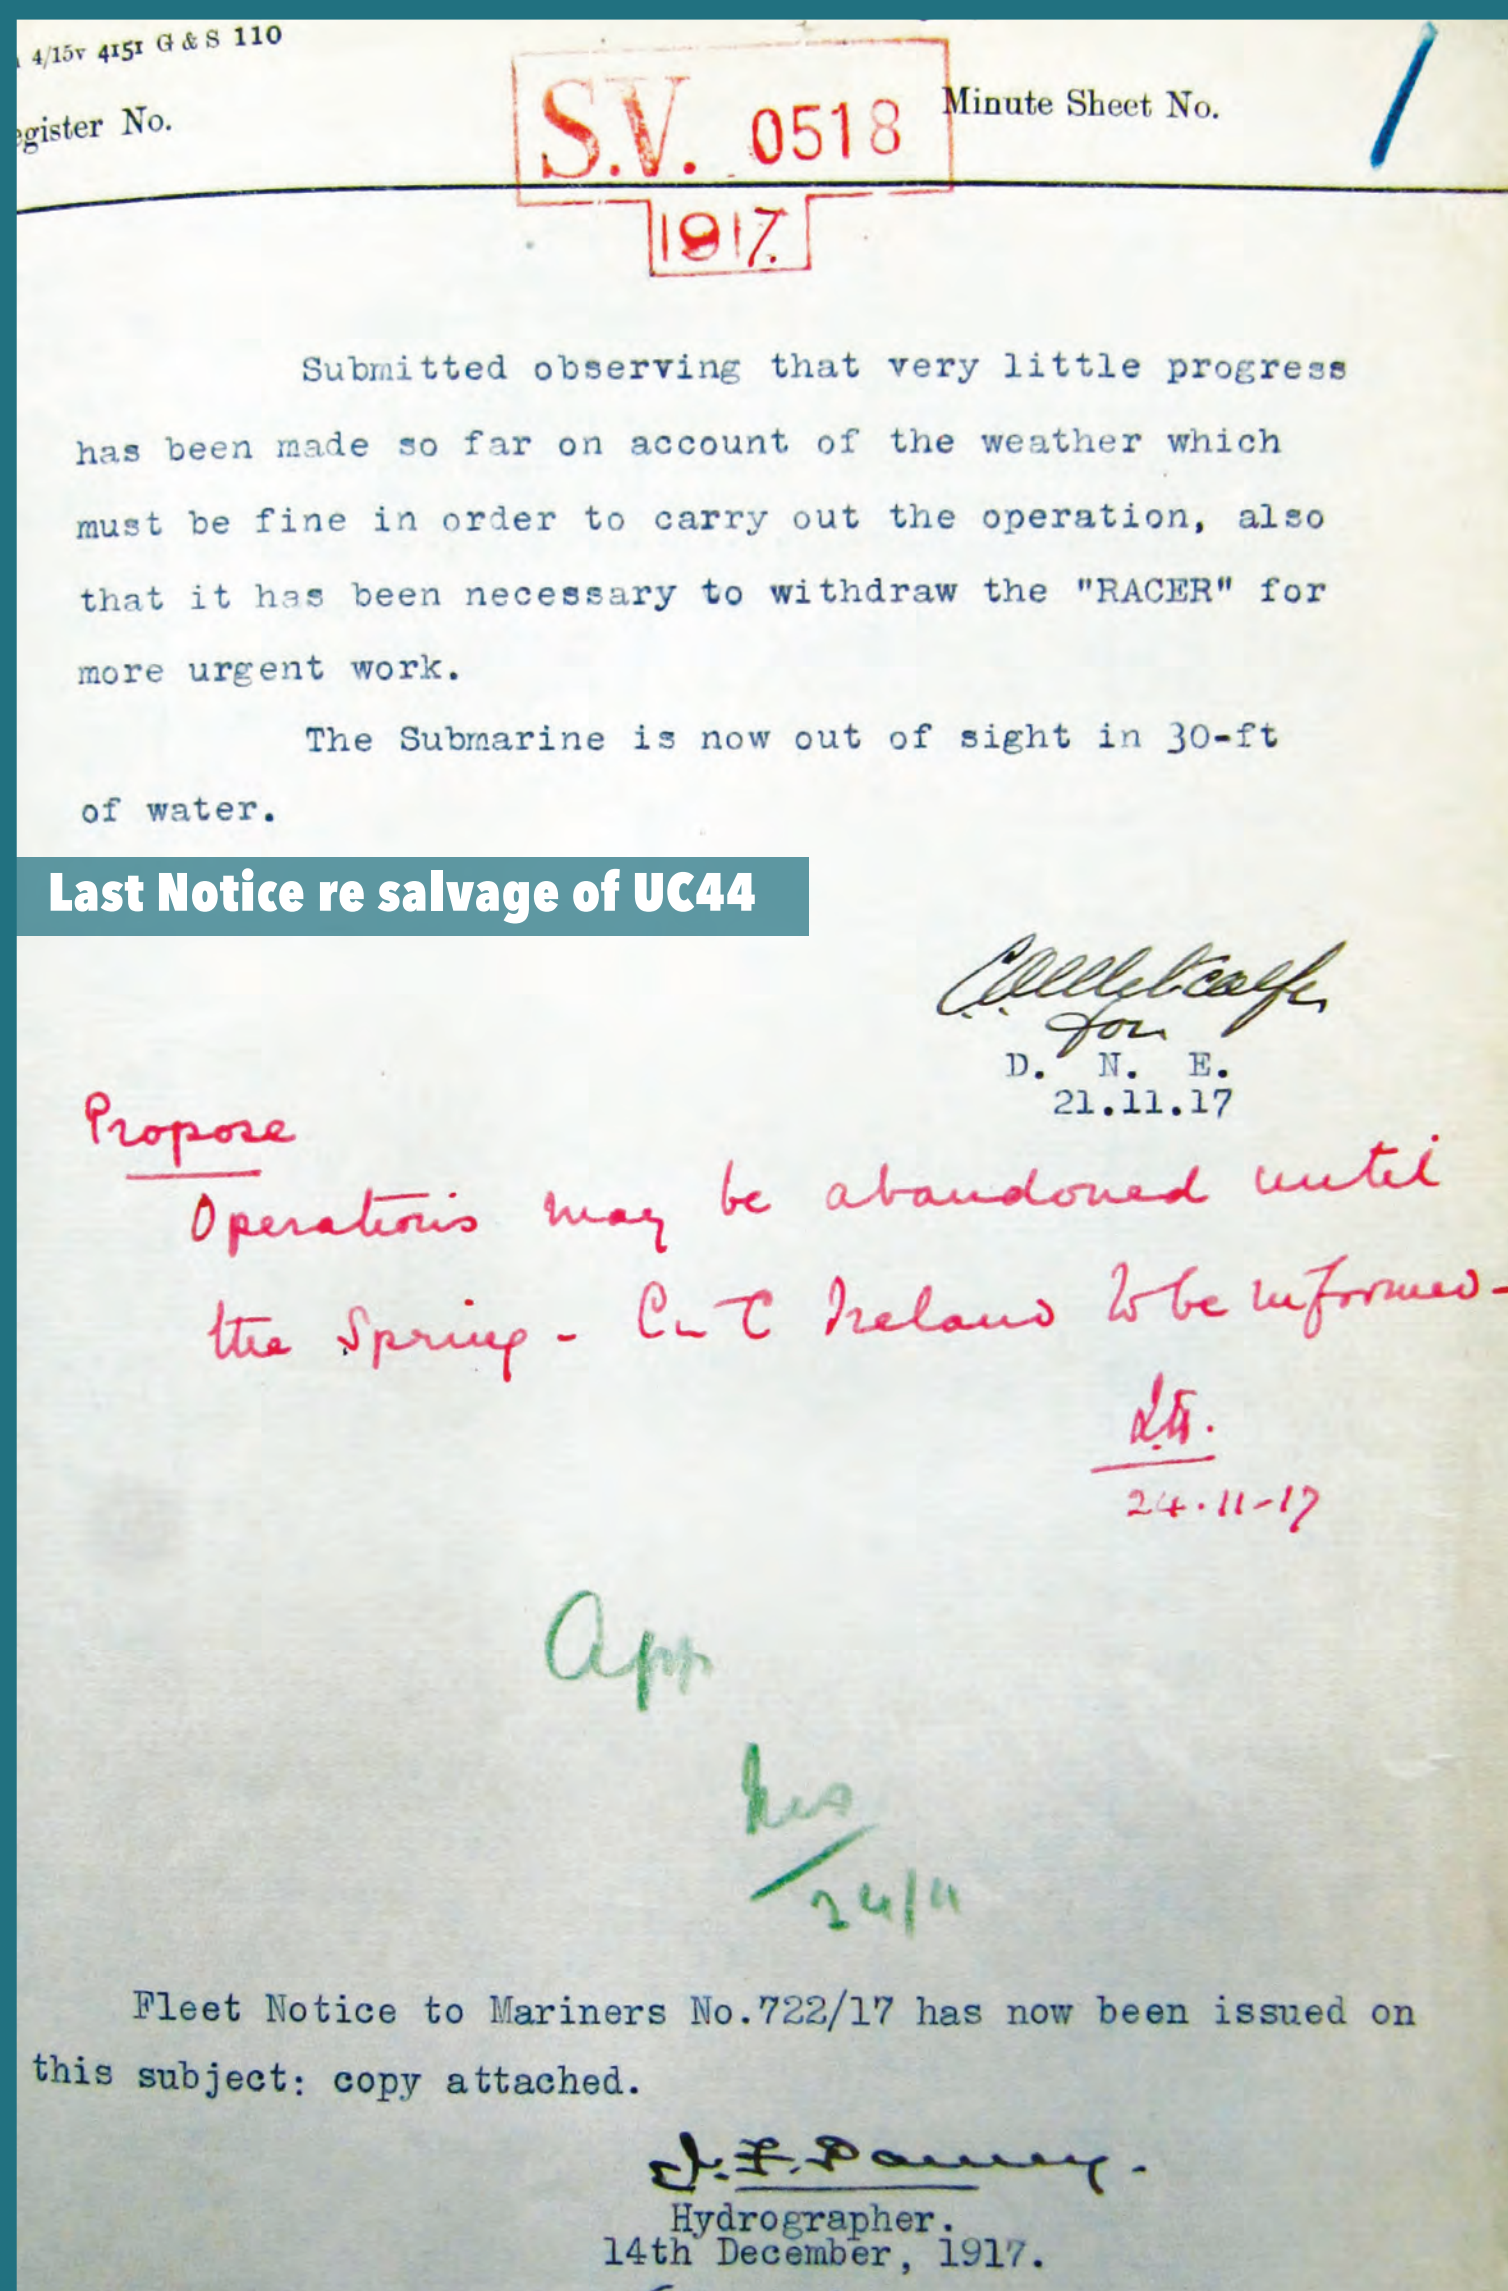 4/15v 4151 G & S 110
egister No.
S.V. 0518
Minute Sheet No. 1
1917.
Submitted observing that very little progress
has been made so far on account of the weather which
must be fine in order to carry out the operation, also
that it has been necessary to withdraw the "RACER" for
more urgent work.
The Submarine is now out of sight in 30-ft
of water.
Last Notice re salvage of UC44
Metcalfe
for
D. N. E.
21.11.17
Propose
Operations may be abandoned until
the Spring - C-C Ireland to be informed -
24.11-17
App
24/11
Fleet Notice to Mariners No.722/17 has now been issued on
this subject: copy attached.
J.F.Parry.
Hydrographer.
14th December, 1917.